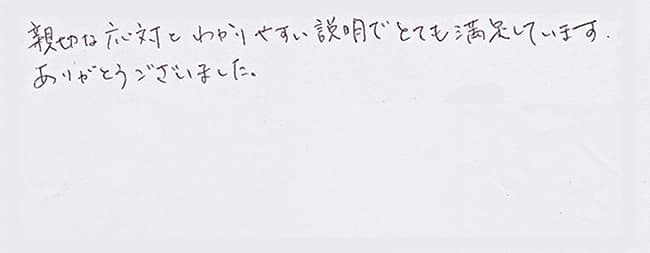 親切な応対とわかりやすい説明でとても満足しています.
ありがとうございました。